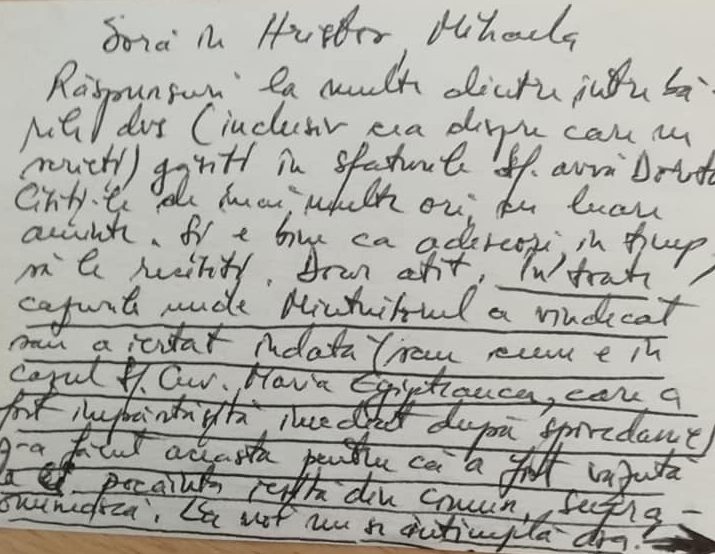 Soră în Hristos, Mihaela
Răspunsuri la multe dintre întrebă-
rile dvs (inclusiv cea despre care îmi
scrieți) găsiți în sfaturile Sf. avva Dorotei
Citiți-le de mai multe ori, cu luare
aminte. Și e bine ca adeseori, în timp,
să le recitiți. Doar atât. În toate
cazurile unde Mântuitorul a vindecat
sau a iertat îndată (sau cum e în
cazul Sf. Cuv. Maria Egipteanca, care a
fost împărtășită imediat după spovedanie)
s-a făcut aceasta pentru că a fost văzută
pocăință ieșită din comun, supra-
omenească. La noi nu se întâmplă așa.